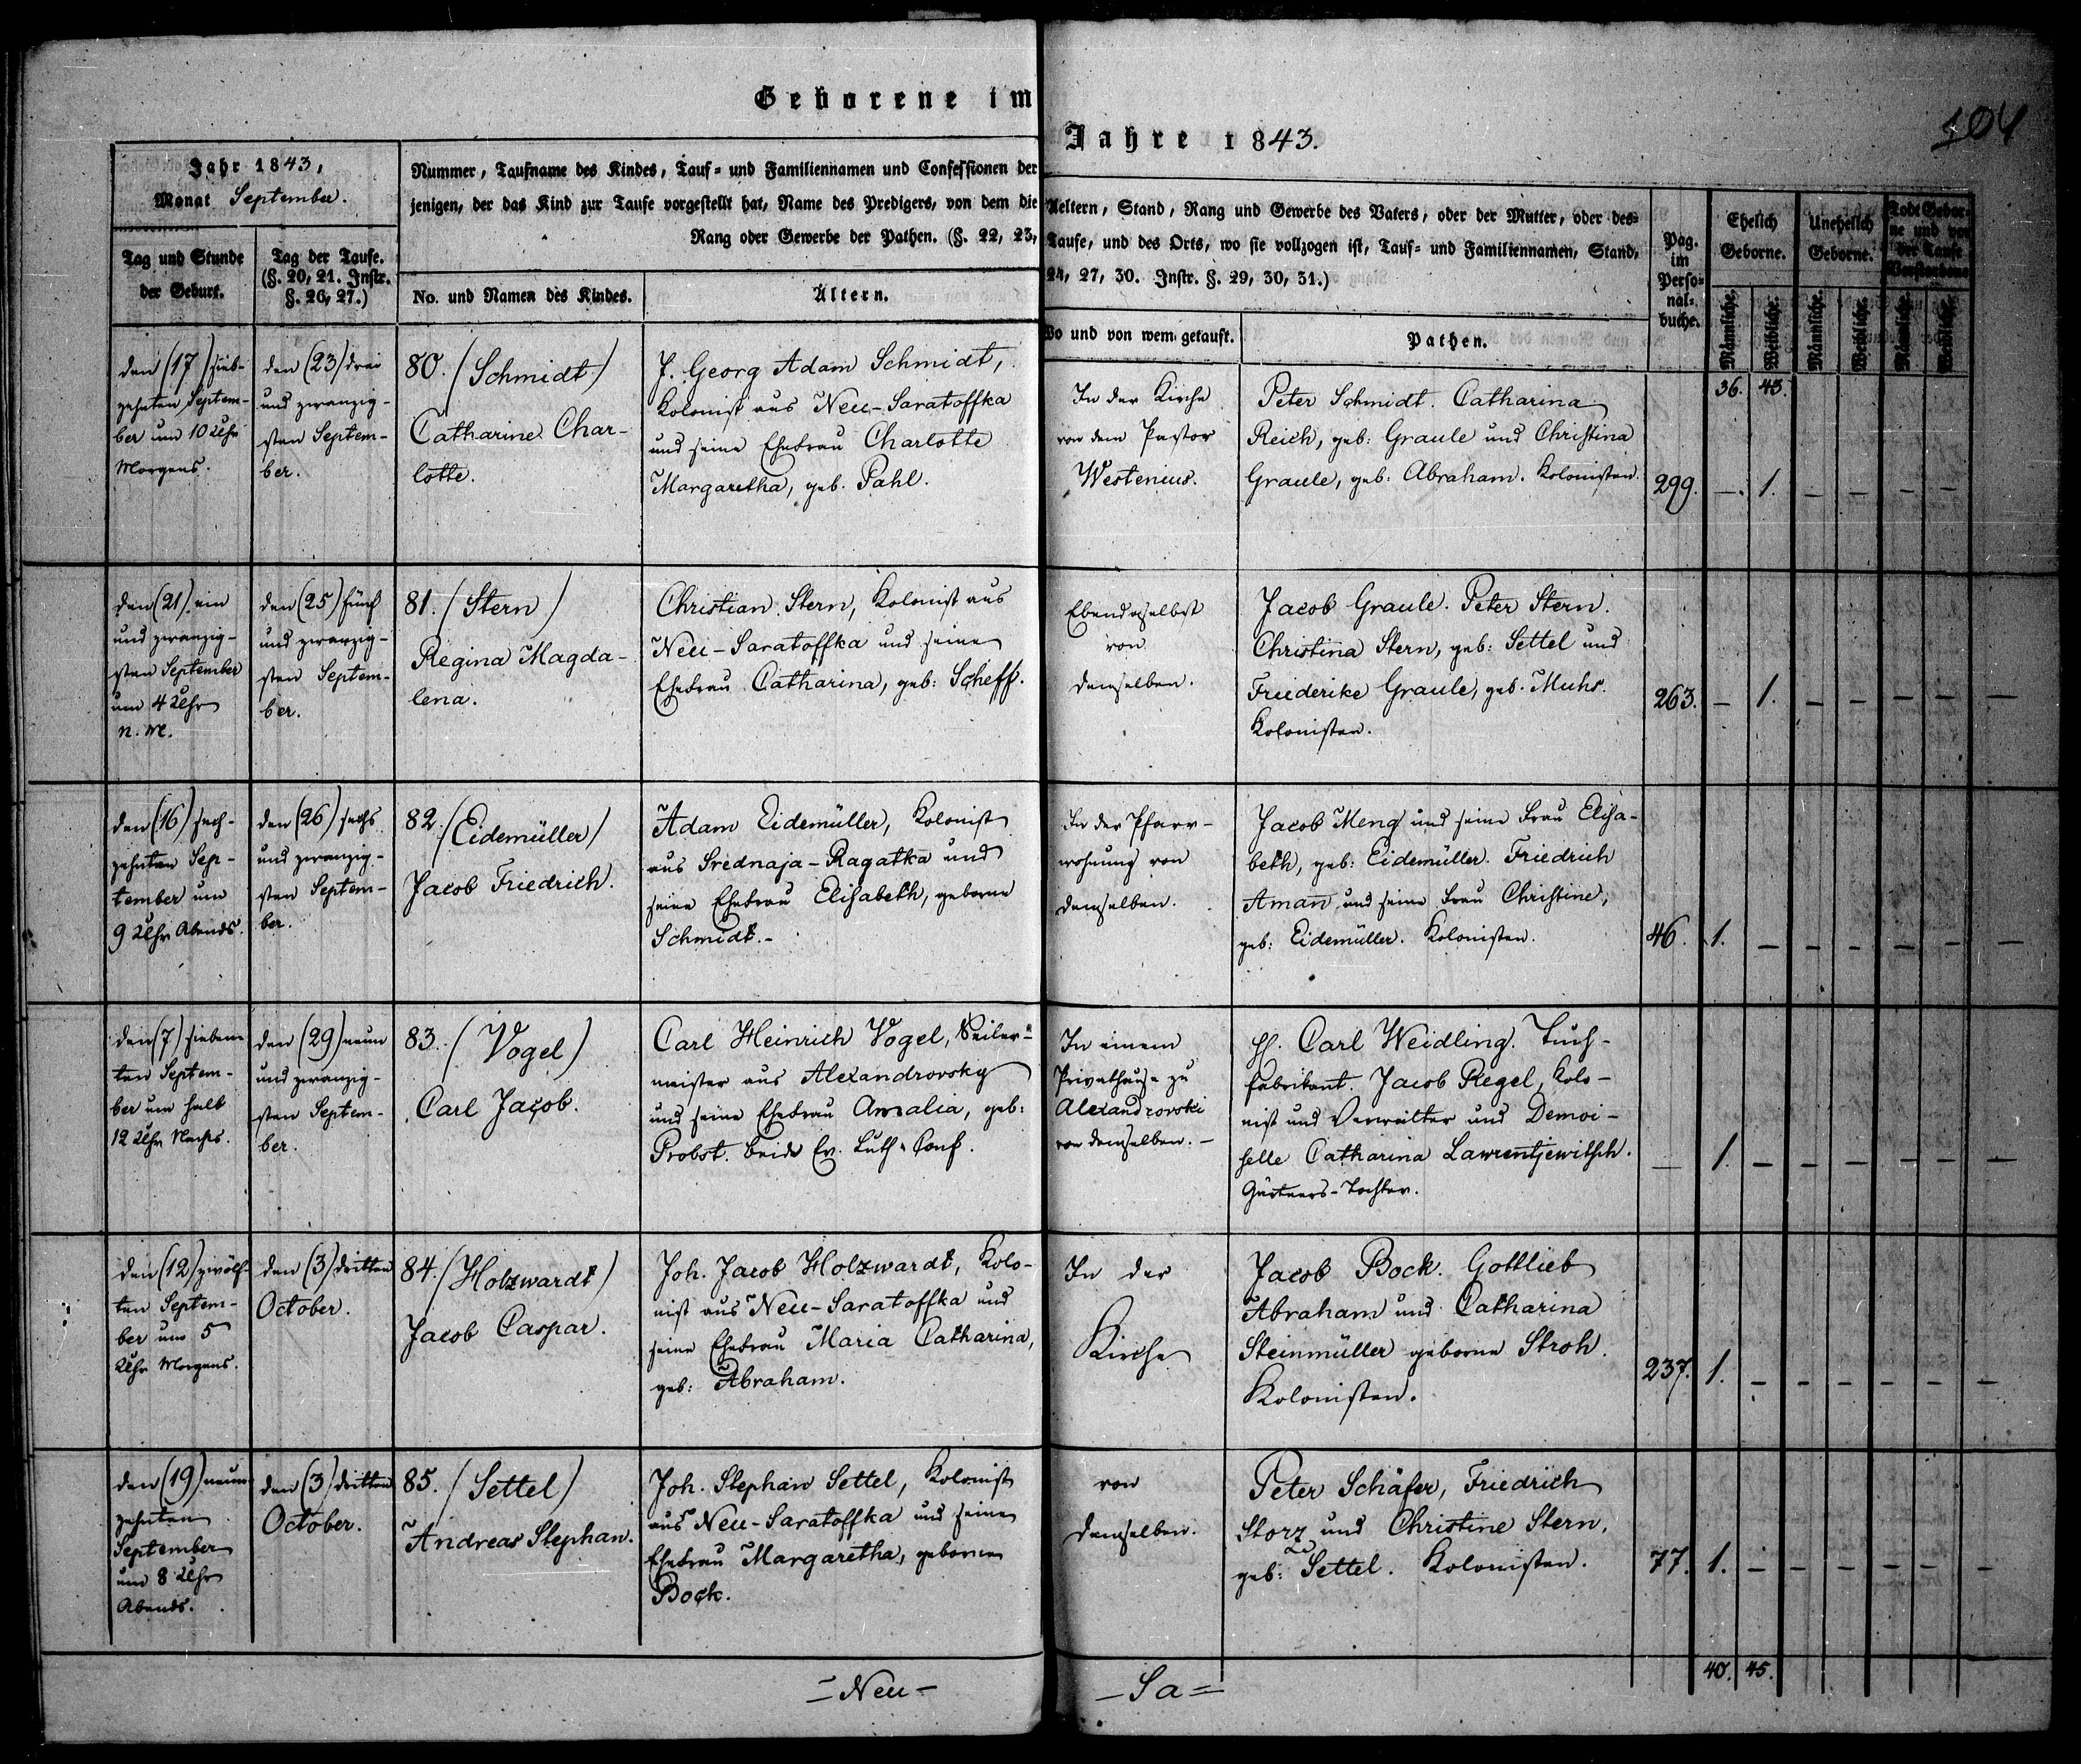 Geborene im
Jahre 1843.
104
Jahr 1843,
Monat September.
Nummer, Taufname des Kindes, Tauf- und Familiennamen und Confessionen der
jenigen, der das Kind zur Taufe vorgestellt hat, Name des Predigers, von dem die
Rang oder Gewerbe der Pathen. (§. 22, 23,
Aeltern, Stand, Rang und Gewerbe des Vaters, oder der Mutter, oder des-
Taufe, und des Orts, wo sie vollzogen ist, Tauf- und Familiennamen, Stand,
24, 27, 30. Instr. §. 29, 30, 31.)
Tag und Stunde
der Geburt.
Tag der Taufe.
(§. 20, 21. Instr.
§. 26, 27.)
No. und Namen des Kindes.
Ältern.
Wo und von wem getauft.
Pathen.
Pag.
im
Perso-
nal-
buche.
Ehelich
Geborne.
Unehelich
Geborne.
Todt Gebor-
ne und vor
der Taufe
Verstorbene
Männliche.
Weibliche.
Männliche.
Weibliche.
Männliche.
Weibliche.
36. 43.
den (17) sieb-
zehnten Septem-
ber um 10 Uhr
Morgens.
den (23) drei
und zwanzig-
sten Septem-
ber.
80. (Schmidt)
Catharine Char-
lotte.
J. Georg Adam Schmidt,
Kolonist aus Neu-Saratoffka
und seine Ehefrau Charlotte
Margaretha, geb. Pahl.
In der Kirche
von dem Pastor
Westenius.
Peter Schmidt. Catharina
Reich, geb: Graule und Christina
Graule, geb: Abraham. Kolonisten.
299. —. 1. — — — —
den (21) ein
und zwanzig-
sten September
um 4 Uhr
N. M.
den (25) fünf
und zwanzig-
sten Septem-
ber.
81. (Stern)
Regina Magda-
lena.
Christian Stern, Kolonist aus
Neu-Saratoffka und seine
Ehefrau Catharina, geb: Scheff.
Ebendaselbst
von
demselben.
Jacob Graule. Peter Stern.
Christina Stern, geb: Settel und
Friederike Graule, geb. Muhs.
Kolonisten.
263. — 1. — — — — —
den (16) sech-
zehnten Sep-
tember um
9 Uhr Abends.
den (26) sechs
und zwanzig-
sten Septem-
ber.
82. (Eidemüller)
Jacob Friedrich.
Adam Eidemüller, Kolonist
aus Srednaja-Ragatka und
seine Ehefrau Elisabeth, geborne
Schmidt.-
In der Pfarr-
wohnung von
demselben.
Jacob Meng und seine Frau Elisa-
beth, geb: Eidemüller. Friedrich
Aman̄ und seine Frau Christine,
geb: Eidemüller. Kolonisten.
46. 1. — — — — — —
den (7) sieben-
ten Septem-
ber um halb
12 Uhr Nachts.
den (29) neun
und zwanzig-
sten Septem-
ber.
83. (Vogel)
Carl Jacob.
Carl Heinrich Vogel, Seiler-
meister aus Alexandrovsky
und seine Ehefrau Amalia, geb:
Probst. beide Ev. Luth. Conf.
In einem
Privathause zu
Alexandrovski
von demselben. —
H. Carl Weidling. Tuch-
fabrikant. Jacob Regel, Kolo-
nist und Verwalter und Demoi-
selle Catharina Lawrentjewitsch.
Gärtners-Tochter.
— 1. — — — — — —
den (12) zwölf-
ten Septem-
ber um 5
Uhr Morgens.
den (3) dritten
October.
84. (Holzwardt)
Jacob Caspar.
Joh. Jacob Holzwardt, Kolo-
nist aus Neu-Saratoffka und
seine Ehefrau Maria Catharina,
geb: Abraham.
In der
Kirche
Jacob Bock. Gottlieb
Abraham und Catharina
Steinmüller geborne Stroh.
Kolonisten.
237. 1. — — — — — —
den (19) neun-
zehnten
September
um 8 Uhr
Abends.
den (3) dritten
October.
85. (Settel)
Andreas Stephan.
Joh. Stephan Settel, Kolonist
aus Neu-Saratoffka und seine
Ehefrau Margaretha, geborne
Bock.
von
demselben.
Peter Schäfer, Friedrich
Storz und Christine Stern,
geb: Settel. Kolonisten.
77. 1. — — — — — —
40. 45.
=Neu-
-Sa=